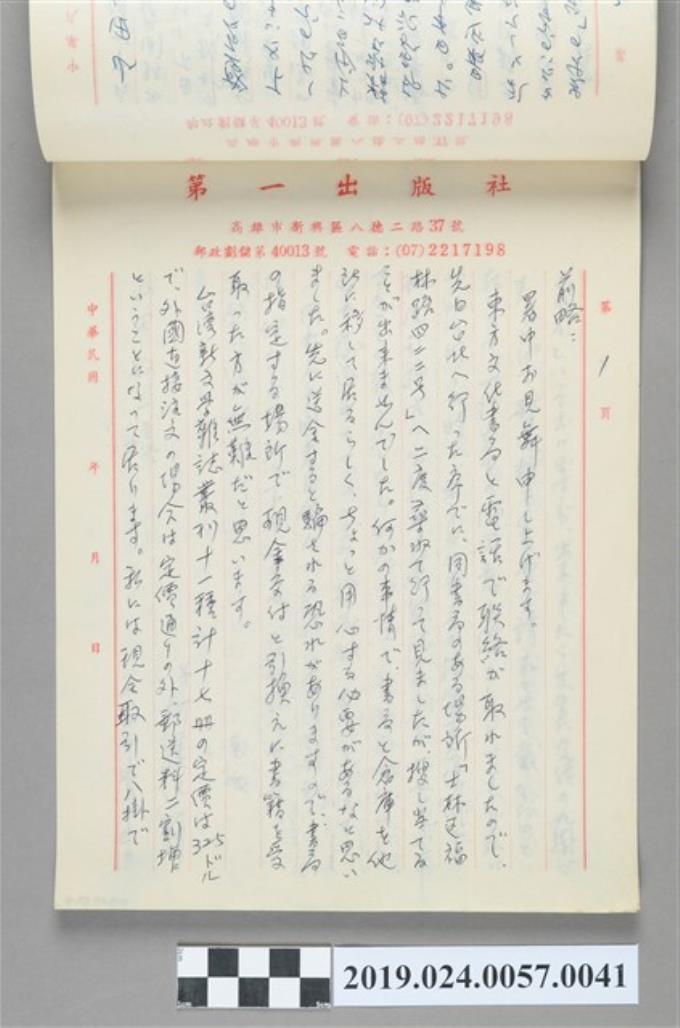 郵政劃儲第40013號 電話：(07)2217198
第一出版社
高雄市新興區八德二路37號
郵政劃儲第40013號 電話：(07)2217198
第 1 頁
前略：
暑中お見舞申し上げます。
東方文化書局と電話で联絡が取れましたので、
先日台北へ行った序でに、同書局のある場所「士林区福
林路四二二号」へ二度尋ねて行って見ましたが、捜し当てる
ことが出来ませんでした。何かの事情で、書局と倉庫を他
処に移して居るらしく、ちょっと用心する必要があるなと思い
ました。先に送金すると騙される恐れがありますので、書局
の指定する場所で、現金交付と引換えに書籍を受
取った方が無難だと思います。
台湾新文学雜誌叢刊十一種計十七册の定價は325ドル
で、外國直接注文の場合は定價通りの外、郵送料二割増
ということになって居ります。私には現金取引で八掛で
中華民國 年 月 日
2019.024.0057.0041